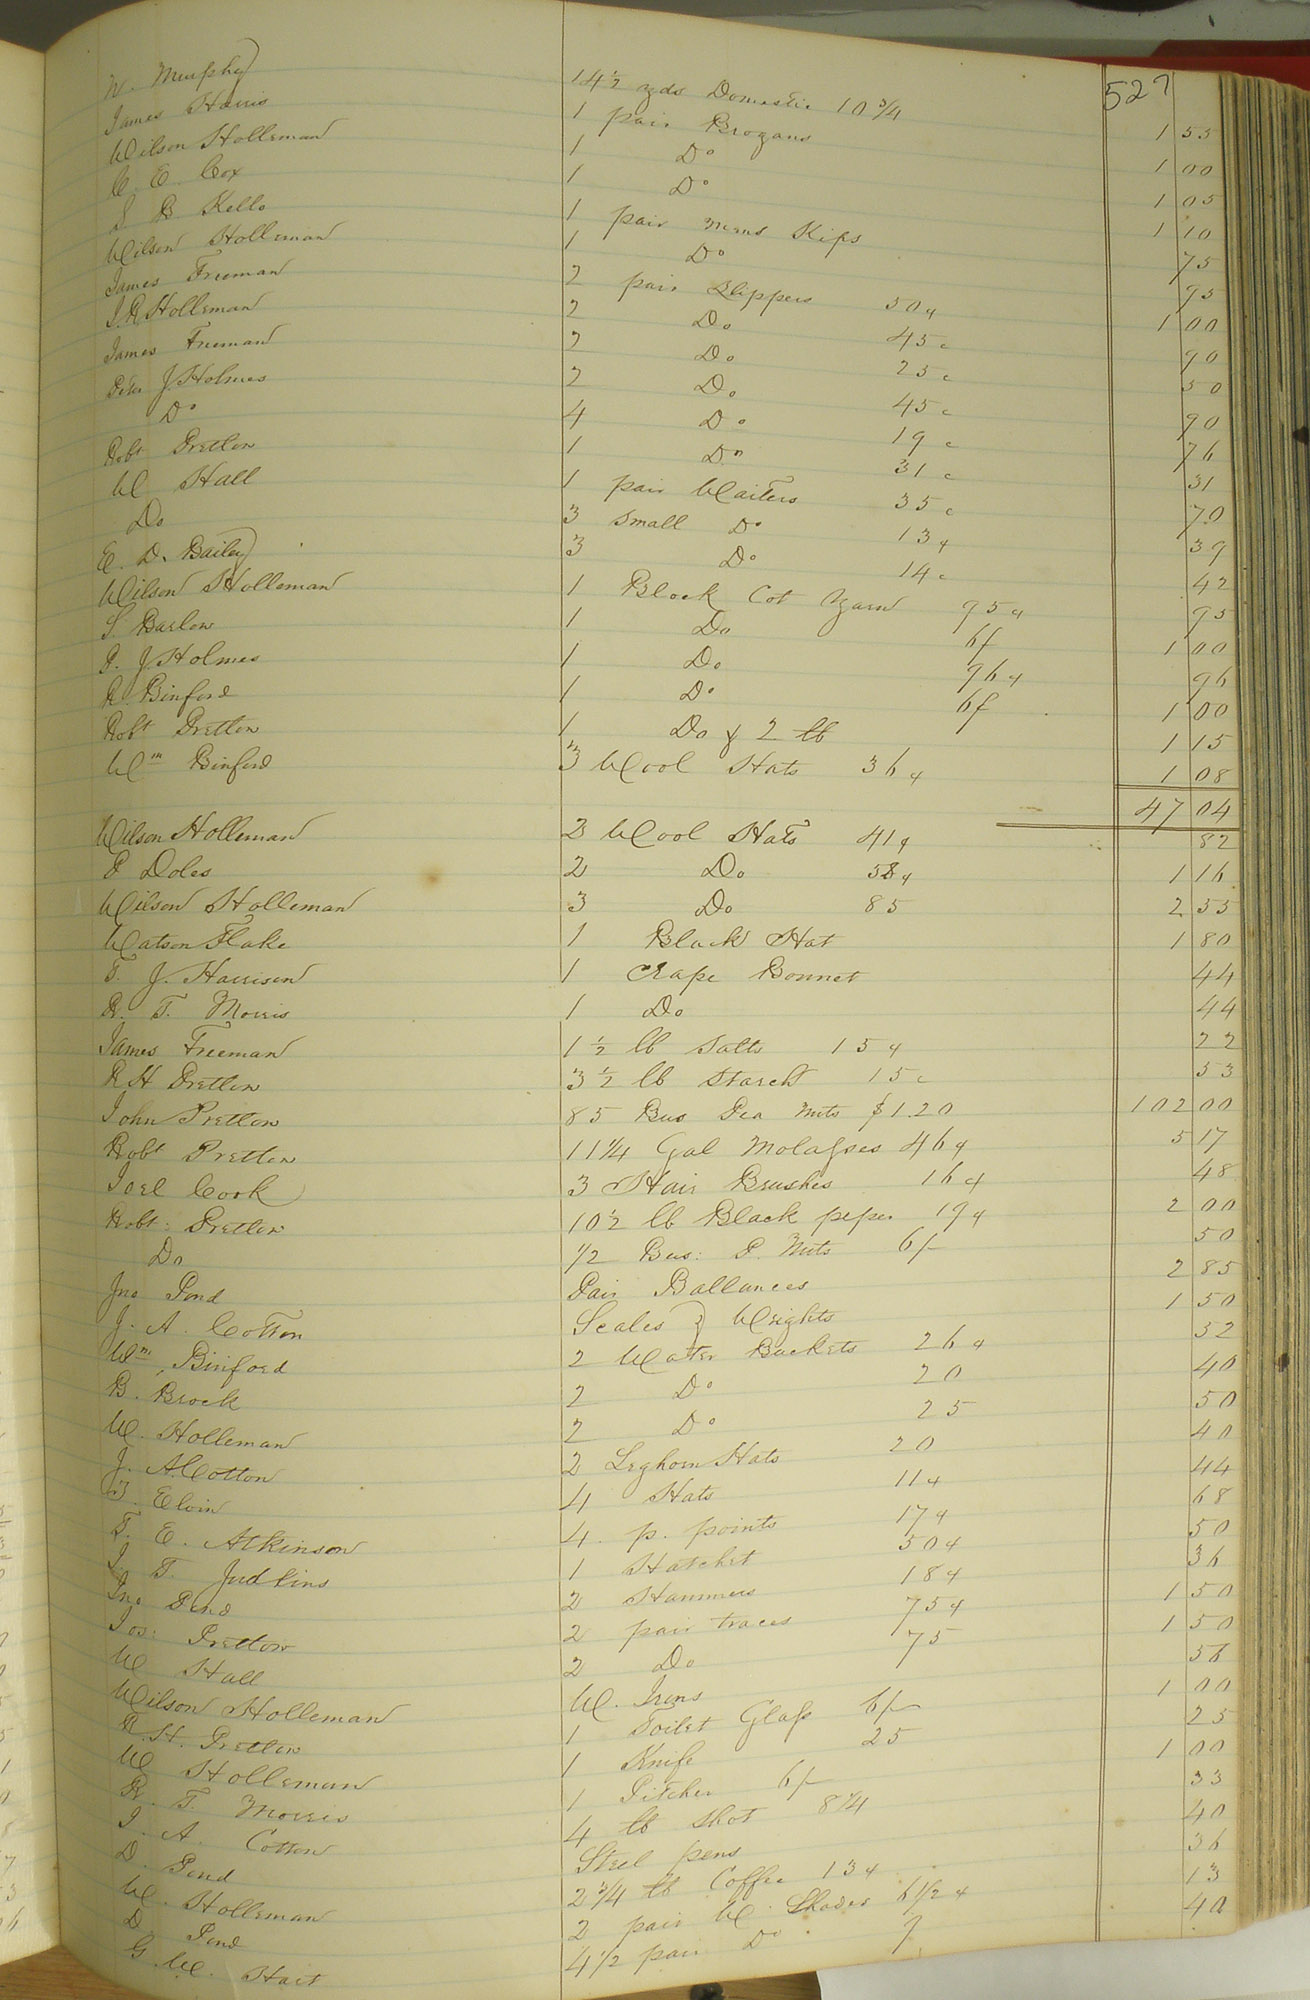 527
W. Murphy 14½ yds Domestic 10¾ 1 55
James Harris 1 pair Brogans 1 00
Wilson Holleman 1 Do 1 05
C. E. Cox 1 Do 1 10
S B Kello 1 pair mens Kips 75
Wilson Holleman 1 Do 95
James Freeman 2 pair Slippers 50¢ 1 00
J. R Holleman 2 Do 45c 90
James Freeman 2 Do 25c 50
Peter J. Holmes 2 Do 45c 90
Do 4 Do 19c 76
Robt Pretlow 1 Do 31c 31
W Hall 1 pair Waiters 35c 70
Do 3 small Do 13¢ 39
E. D. Bailey 3 Do 14c 42
Wilson Holleman 1 Block Cot Yarn 95¢ 95
S. Barlow 1 Do 6/ 1 00
P. J. Holmes 1 Do 96¢ 96
R. Binford 1 Do 6/ 1 00
Robt Pretlow 1 Do & 2 lb 1 15
Wm Binford 3 Wool Hats 36¢ 1 08
47 04
Wilson Holleman 2 Wool Hats 41¢ 82
P Doles 2 Do 58¢ 1 16
Wilson Holleman 3 Do 85 2 55
Watson Flake 1 Black Hat 1 80
T. J. Harrison 1 Crape Bonnet 44
R. T. Morris 1 Do 44
James Freeman 1½ lb Salts 15¢ 22
R H Pretlow 3½ lb Starch 15c 53
John Pretlow 85 Bus Pea nuts $1.20 102 00
Robt Pretlow 11¼ Gal Molasses 46¢ 5 17
Joel Cook 3 Hair Brushes 16¢ 48
Robt: Pretlow 10½ lb Black peper 19¢ 2 00
Do 1/2 Bus: P. Nuts 6/- 50
Jno Pond Pair Ballances 2 85
J. A. Cotton Scales & Weights 1 50
Wm. Binford 2 Water Buckets 26¢ 52
B. Brock 2 Do 20 40
W. Holleman 2 Do 25 50
J. A. Cotton 2 Leghorn Hats 20 40
Elvin 4 Hats 11¢ 44
T. E. Atkinson 4. p. points 17¢ 68
J. T. Judkins 1 Hatchet 50¢ 50
Jno Pond 2 Hammers 18¢ 36
Jos: Pretlow 2 pair traces 75¢ 1 50
W Hall 2 Do 75 1 50
Wilson Holleman W. Irons 56
R. H. Pretlow 1 Toilet Glass 6/- 1 00
W Holleman 1 Knife 25 25
R. T. Morris 1 Pitcher 6/- 1 00
J. A. Cotton 4 lb Shot 8¼ 33
D. Pond Steel pens 40
W. Holleman 2¾ lb Coffee 13¢ 36
D Pond 2 pair W. Shades 6½¢ 13
G. W. Hart 4½ pair Do 9 40